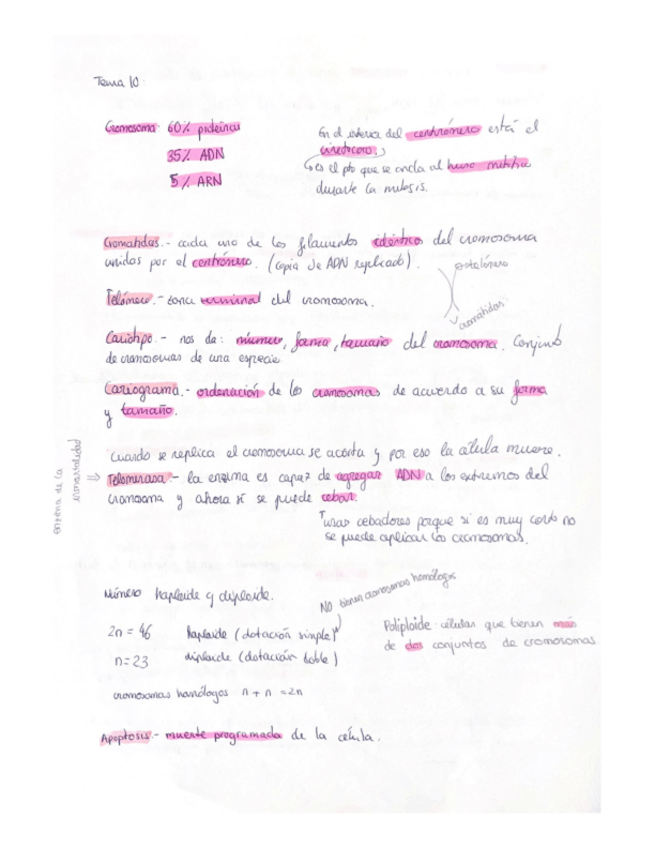 Tema 10:
Cromosoma: 60% proteínas
35% ADN
5% ARN
En el exterior del centrómero está el
cinetocoro.
↳ es el pto que se ancla al huso mitótico
durante la mitosis.
Cromátidas.- cada uno de los filamentos idénticos del cromosoma
unidos por el centrómero. (copia de ADN replicado).
telómero
cromátidas
Telómero.- zona terminal del cromosoma.
Cariotipo.- nos da: número, forma, tamaño del cromosoma. Conjunto
de cromosomas de una especie
Cariograma.- ordenación de los cromosomas de acuerdo a su forma
y tamaño.
Cuando se replica el cromosoma se acorta y por eso la célula muere.
enzima de la
inmortalidad
⇒ Telomerasa.- la enzima es capaz de agregar ADN a los extremos del
cromosoma y ahora sí se puede cebar.
unas cebadores porque si es muy corto no
se puede aplicar los cromosomas.
Número haploide y diploide.
NO tienen cromosomas homólogos
2n = 46 haploide (dotación simple)
n = 23 diploide (dotación doble)
cromosomas homólogos n + n = 2n
Poliploide: células que tienen más
de dos conjuntos de cromosomas
Apoptosis.- muerte programada de la célula.